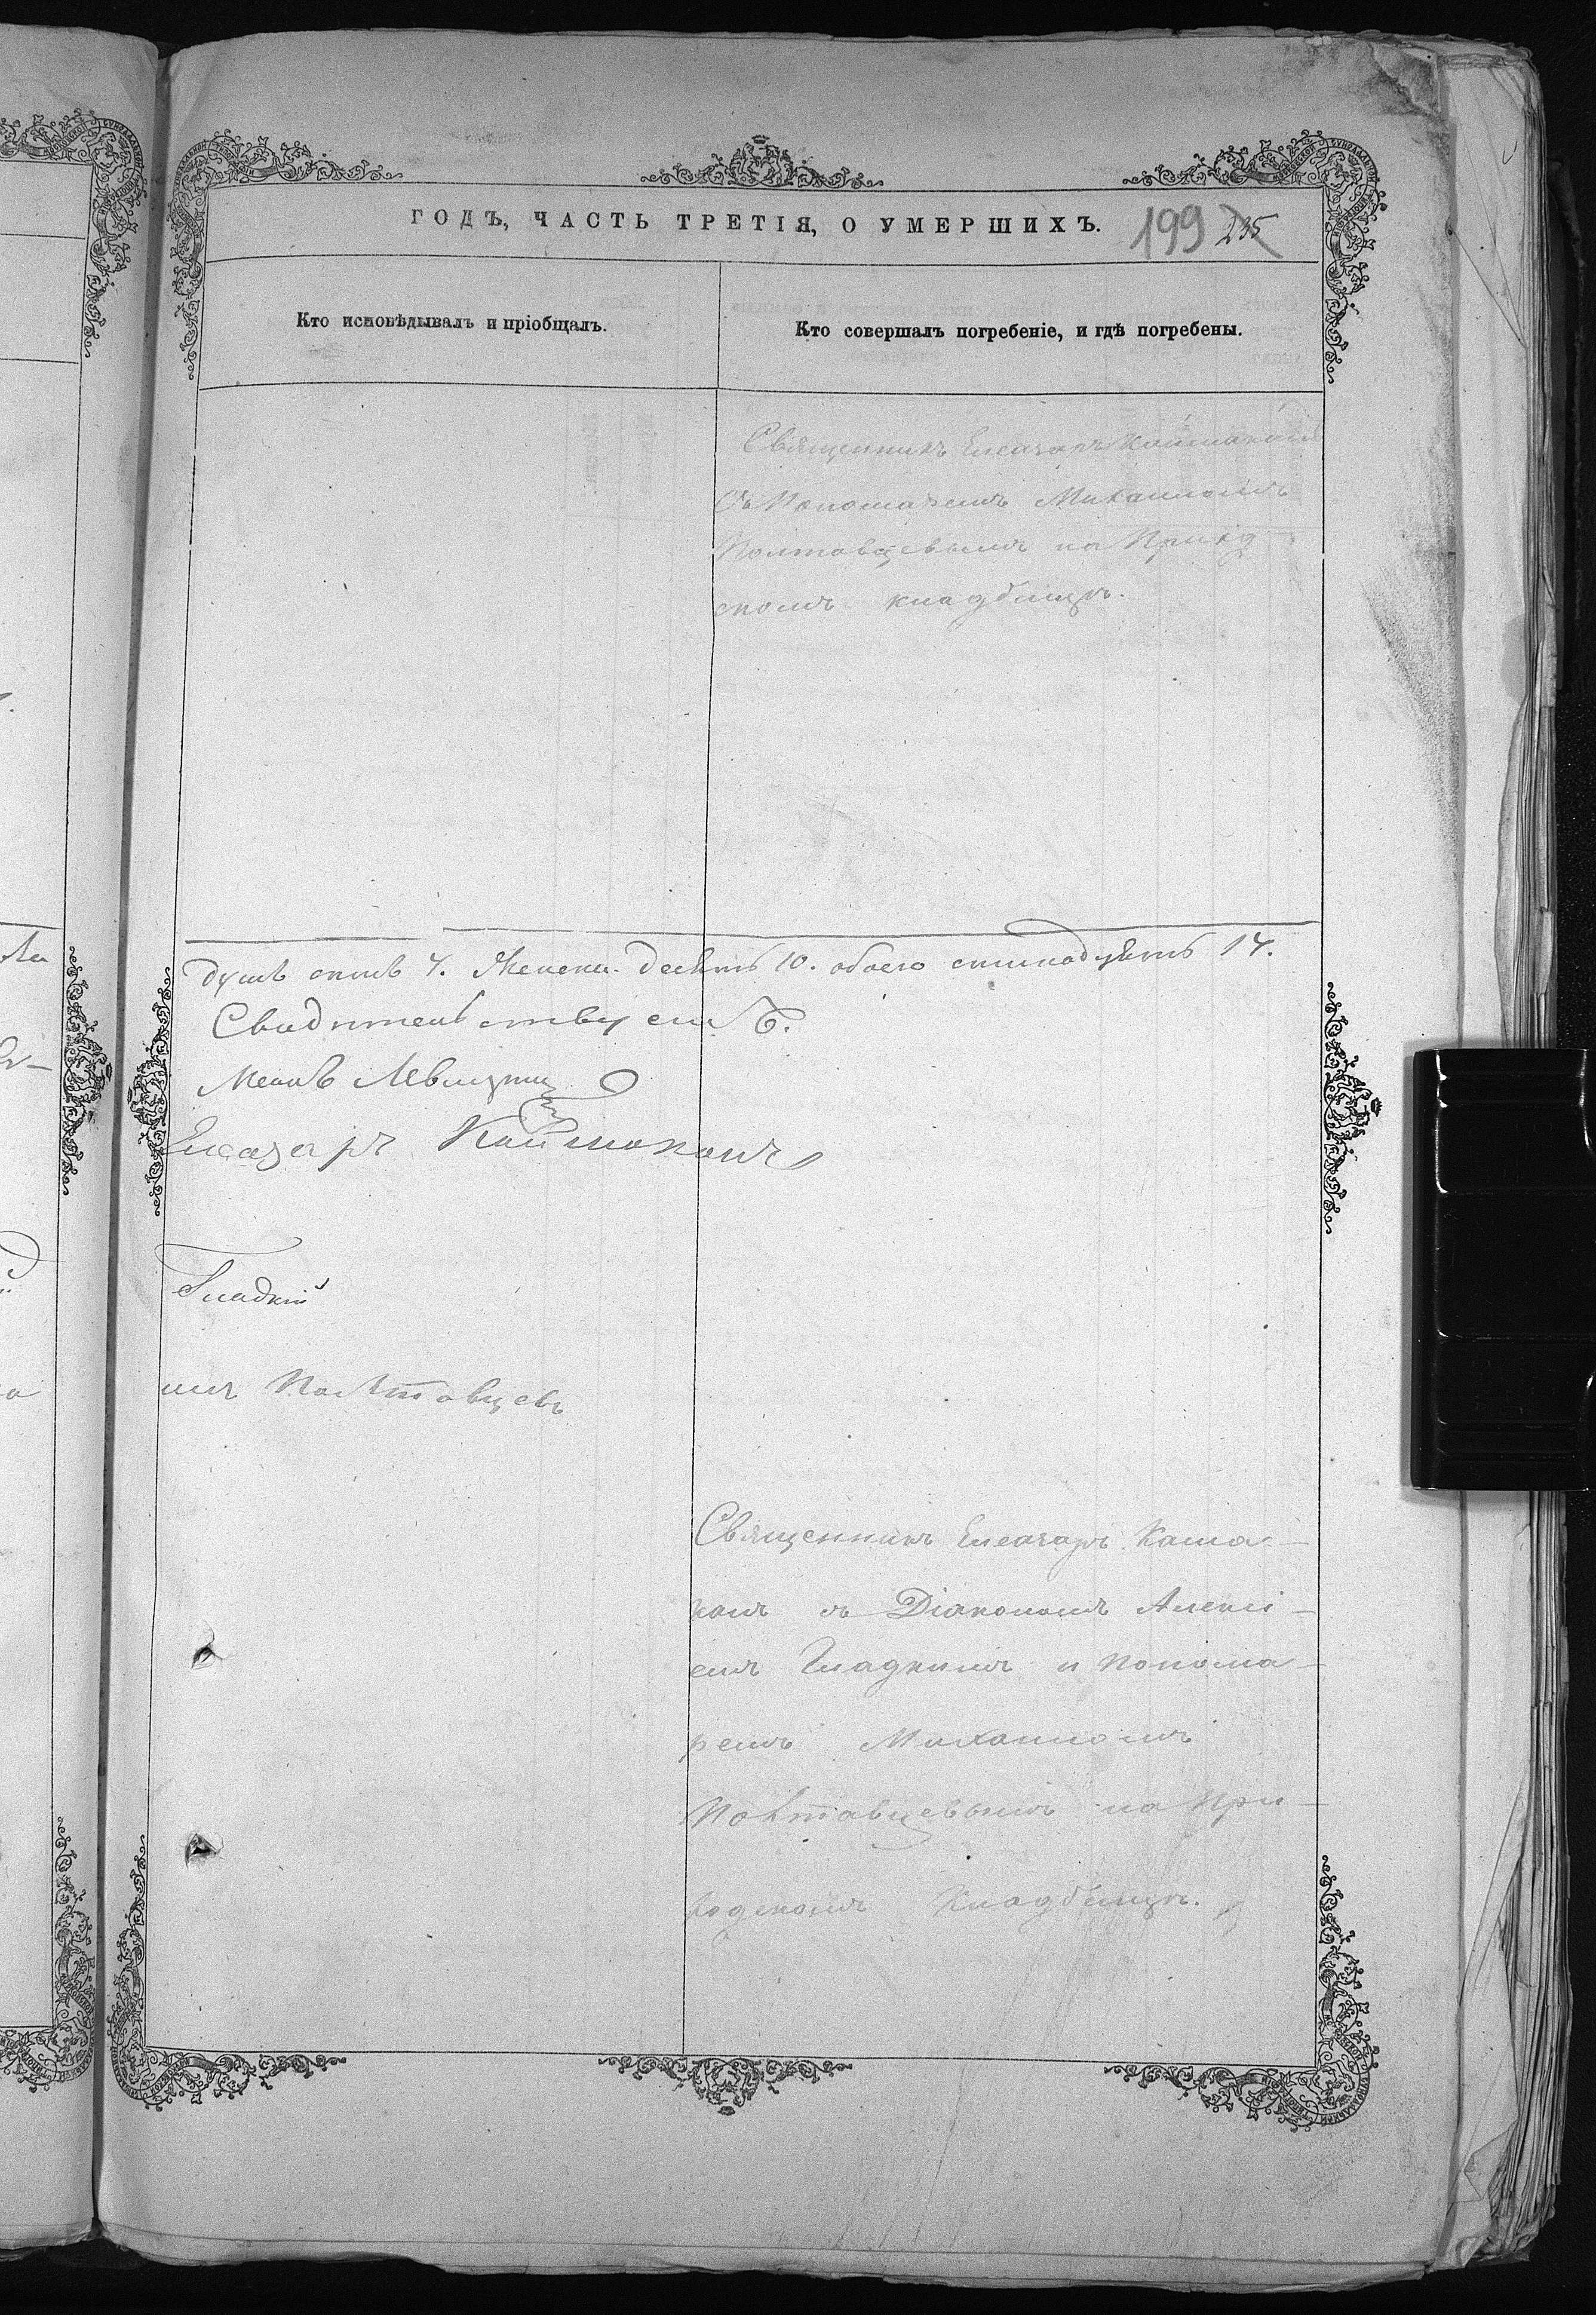 ГОДЪ, ЧАСТЬ ТРЕТІЯ, О УМЕРШИХЪ. 199 235
Кто исповѣдывалъ и пріобщалъ.
Кто совершалъ погребеніе, и гдѣ погребены.
Священникъ Елеазаръ Каймакамъ
Съ Пономаремъ Михаиломъ
Полтавцевымъ на Приход
скомъ кладбищѣ.
душъ семь 7. Женска. десять 10. обоего семнадцять 17.
Свидѣтельствуемъ.
Левицкій
Елеазаръ Каймакамъ
Гладкій
илъ Полтавцевъ
Священникъ Елеазаръ Кайма-
камъ съ Діакономъ Алексі-
емъ Гладкимъ и Понома-
ремъ Михаиломъ
Полтавцевымъ на При-
ходскомъ Кладбищѣ.